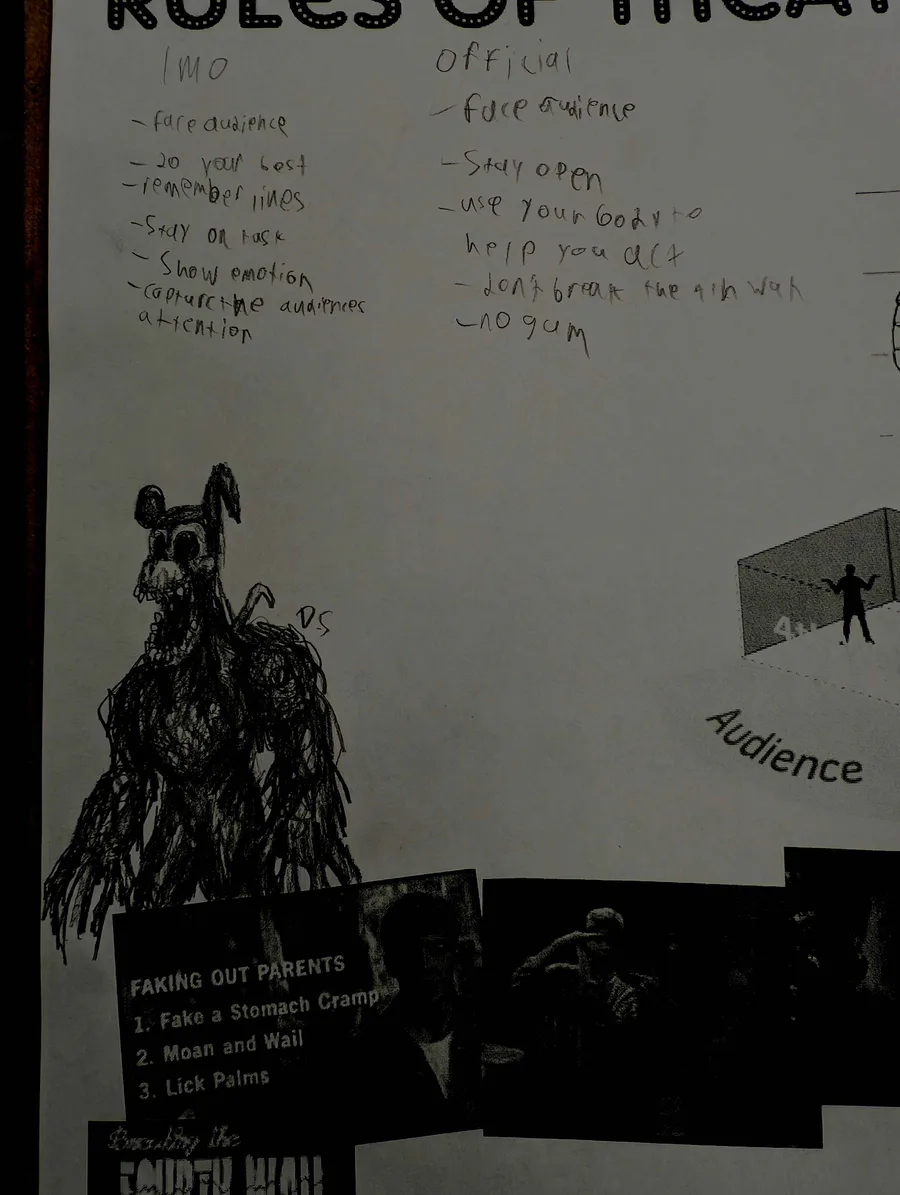 RULES OF THEAT
IMO
- face audience
- Do your best
- remember lines
- Stay on task
- Show emotion
- capture the audiences
attention
Official
- face audience
- Stay open
- use your body to
help you act
- don't break the 4th wall
- no gum
DS
Audience
FAKING OUT PARENTS
1. Fake a Stomach Cramp
2. Moan and Wail
3. Lick Palms
Breaking the
FOURTH WALL